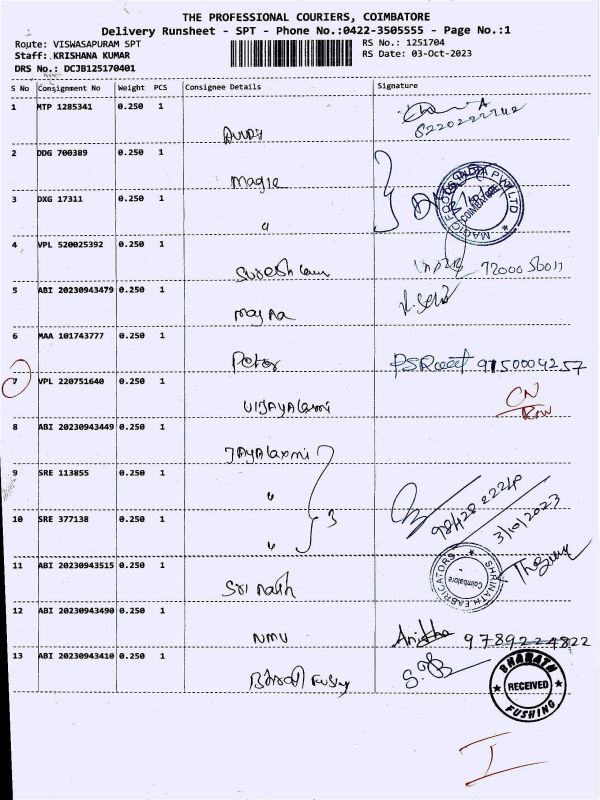 THE PROFESSIONAL COURIERS, COIMBATORE
Delivery Runsheet - SPT - Phone No.:0422-3505555 - Page No.:1
Route: VISWASAPURAM SPT
RS No.: 1251704
Staff: KRISHANA KUMAR
RS Date: 03-Oct-2023
DRS No.: DCJB125170401
S No Consignment No Weight PCS Consignee Details Signature
1 MTP 1285341 0.250 1
2 DDG 700389 0.250 1
Magic
3 DXG 17311 0.250 1
"
MAGIC FOOD PVT LTD
COIMBATORE
4 VPL 520025392 0.250 1
Suresh
72000 50011
5 ABI 20230943479 0.250 1
6 MAA 101743777 0.250 1
Peter
9150004257
7 VPL 220751640 0.250 1
VIJAYALaxmi
CN
8 ABI 20230943449 0.250 1
JAYALaxmi
9 SRE 113855 0.250 1
"
98428 22240
10 SRE 377138 0.250 1
"
3
3/10/2023
11 ABI 20230943515 0.250 1
Sri nath
SHRINATH FABRICATORS
Coimbatore
12 ABI 20230943490 0.250 1
NMV
Anitha 9789224822
13 ABI 20230943410 0.250 1
BHARATH
RECEIVED
FUSHING
I